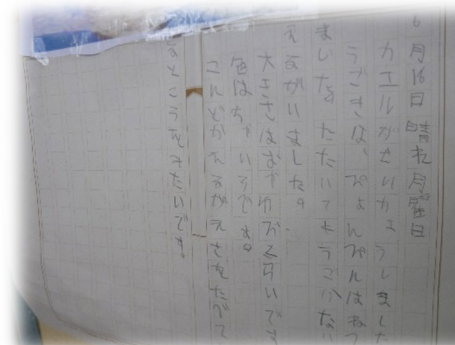 6月16日 晴れ 月曜日
カエルがせいかつしました
うごきは、ぴょんぴょんはねて
ました。たたいてもうごかない
カエルがいました。
大きさはおやゆびぐらいです
色はちゃいろです。
こんどかえるがえさをたべて
るところをみたいです。